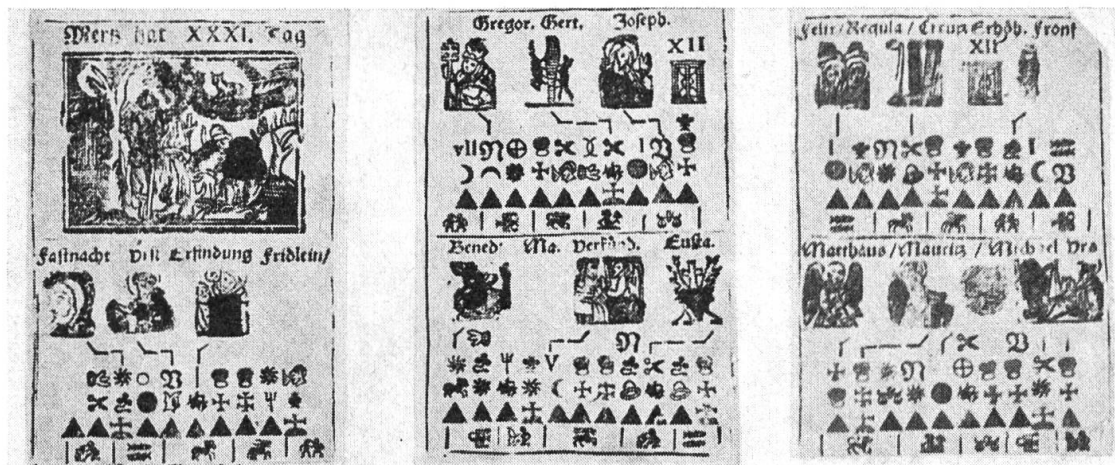 Mertz hat XXXI. Tag
Fastnacht Erfindung Fridlein/
Gregor. Gert. Joseph.
XII
VII
Bened. Ma. Verkünd. Eusta.
V
Felix/Regula/Creutz Erhöb. Front
XII
Matthäus/Mauritz/Michael Urs